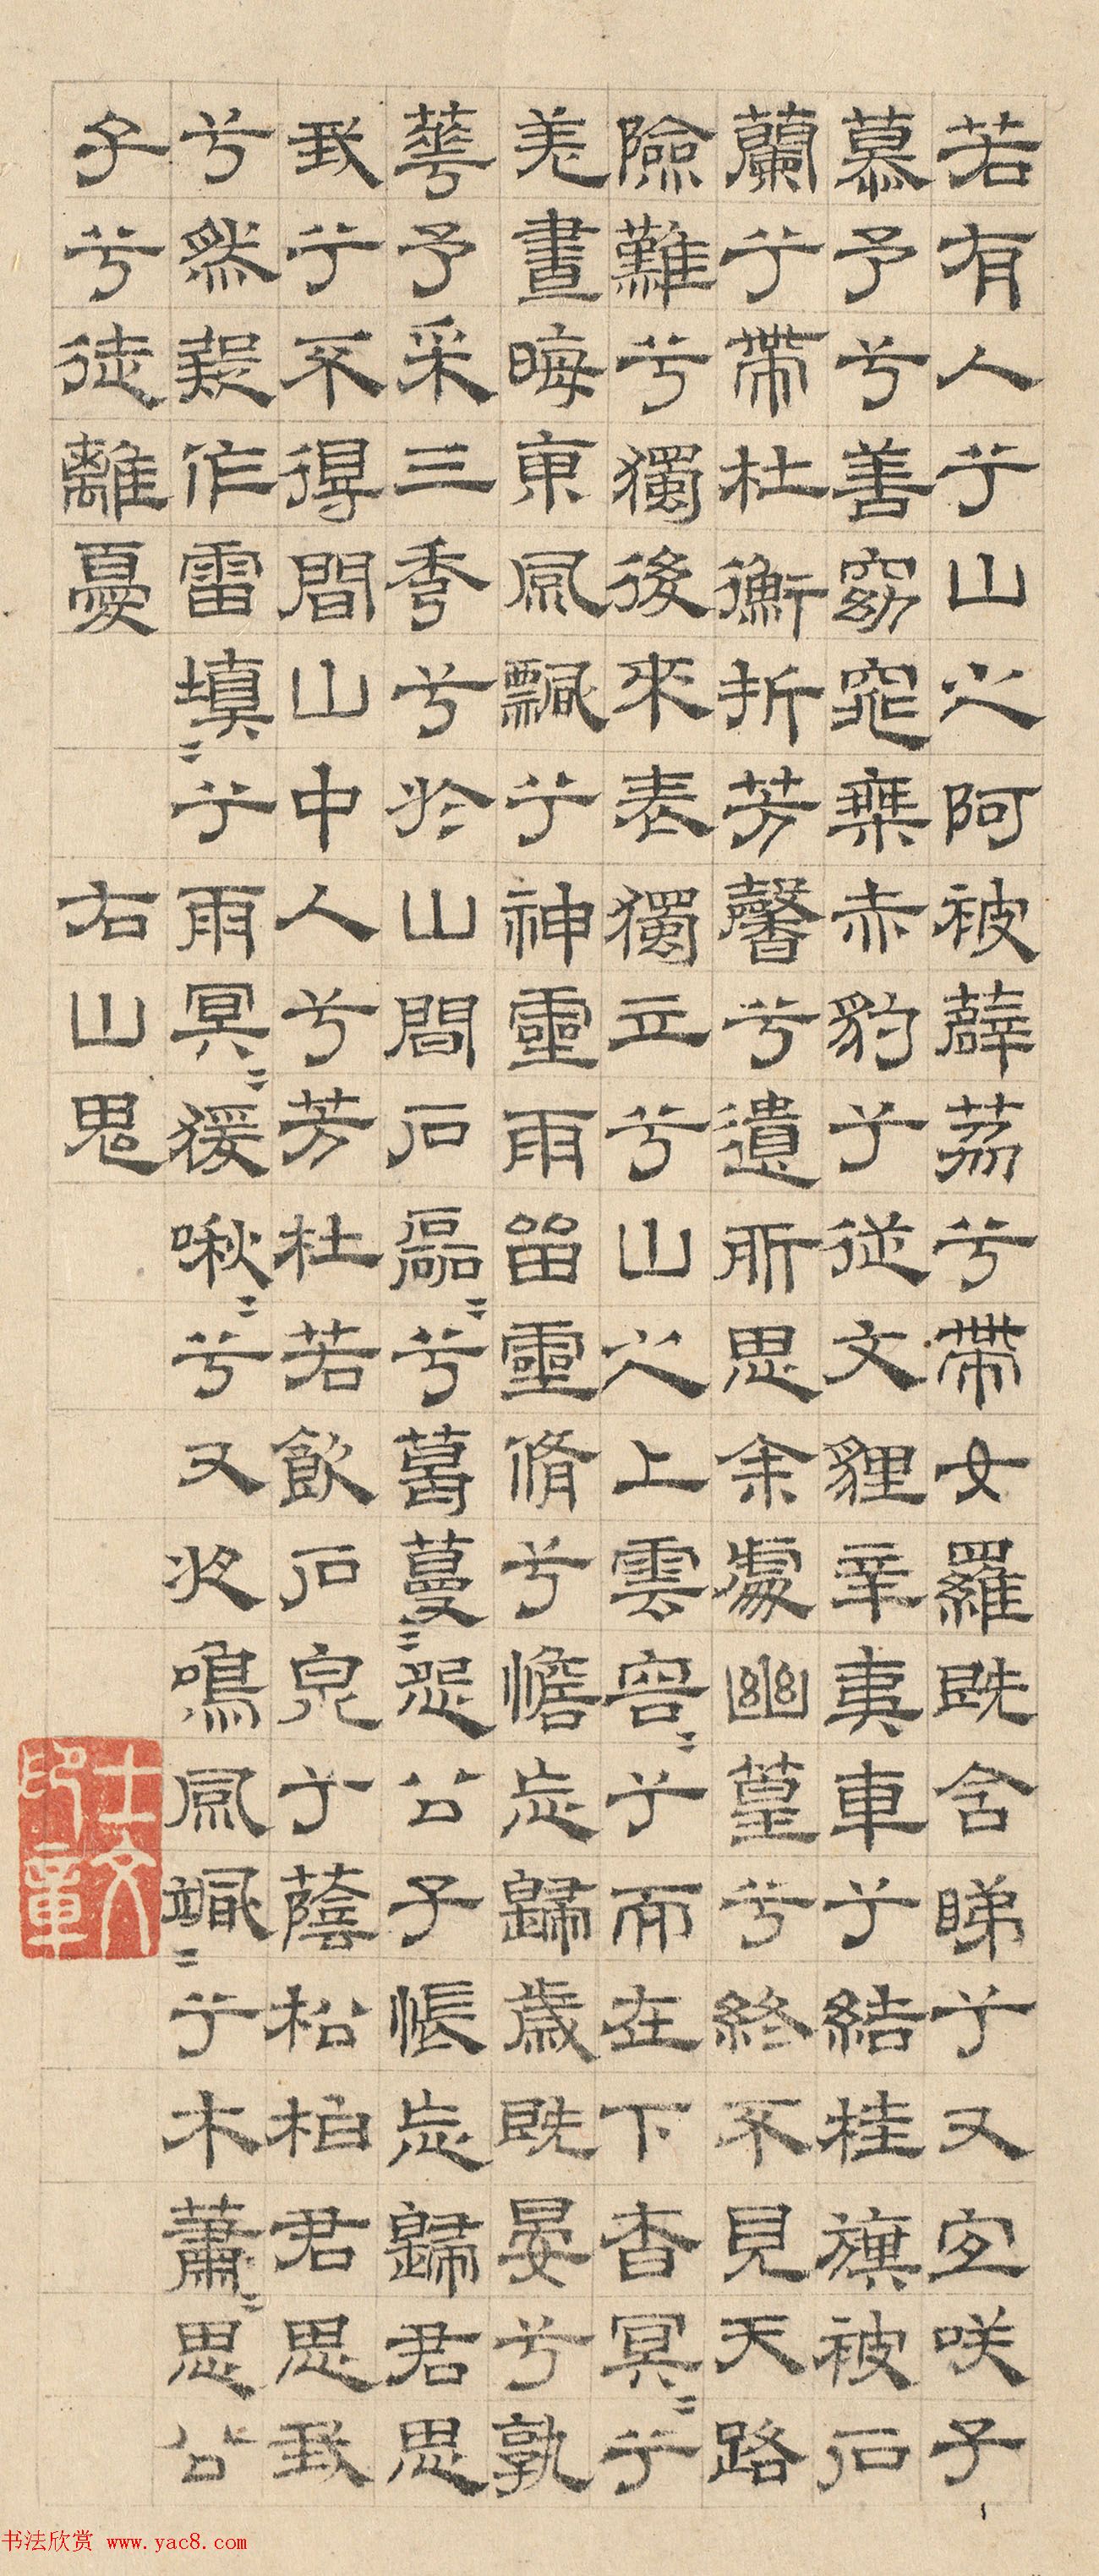 若有人兮山之阿被薜荔兮帶女羅既含睇兮又宜咲子
慕予兮善窈窕乘赤豹兮從文貍辛夷車兮結桂旗被石
蘭兮帶杜衡折芳馨兮遺所思余處幽篁兮終不見天路
險難兮獨後來表獨立兮山之上雲容〻兮而在下杳冥〻兮
羌晝晦東風飄兮神靈雨留靈脩兮憺忘歸歲既晏兮孰
華予采三秀兮於山間石磊〻兮葛蔓〻怨公子悵忘歸君思
我兮不得間山中人兮芳杜若飲石泉兮蔭松柏君思我
兮然疑作雷填〻兮雨冥〻猨啾〻兮又夜鳴風颯〻兮木蕭〻思公
子兮徒離憂 右山鬼
士文印章
书法欣赏 www.yac8.com